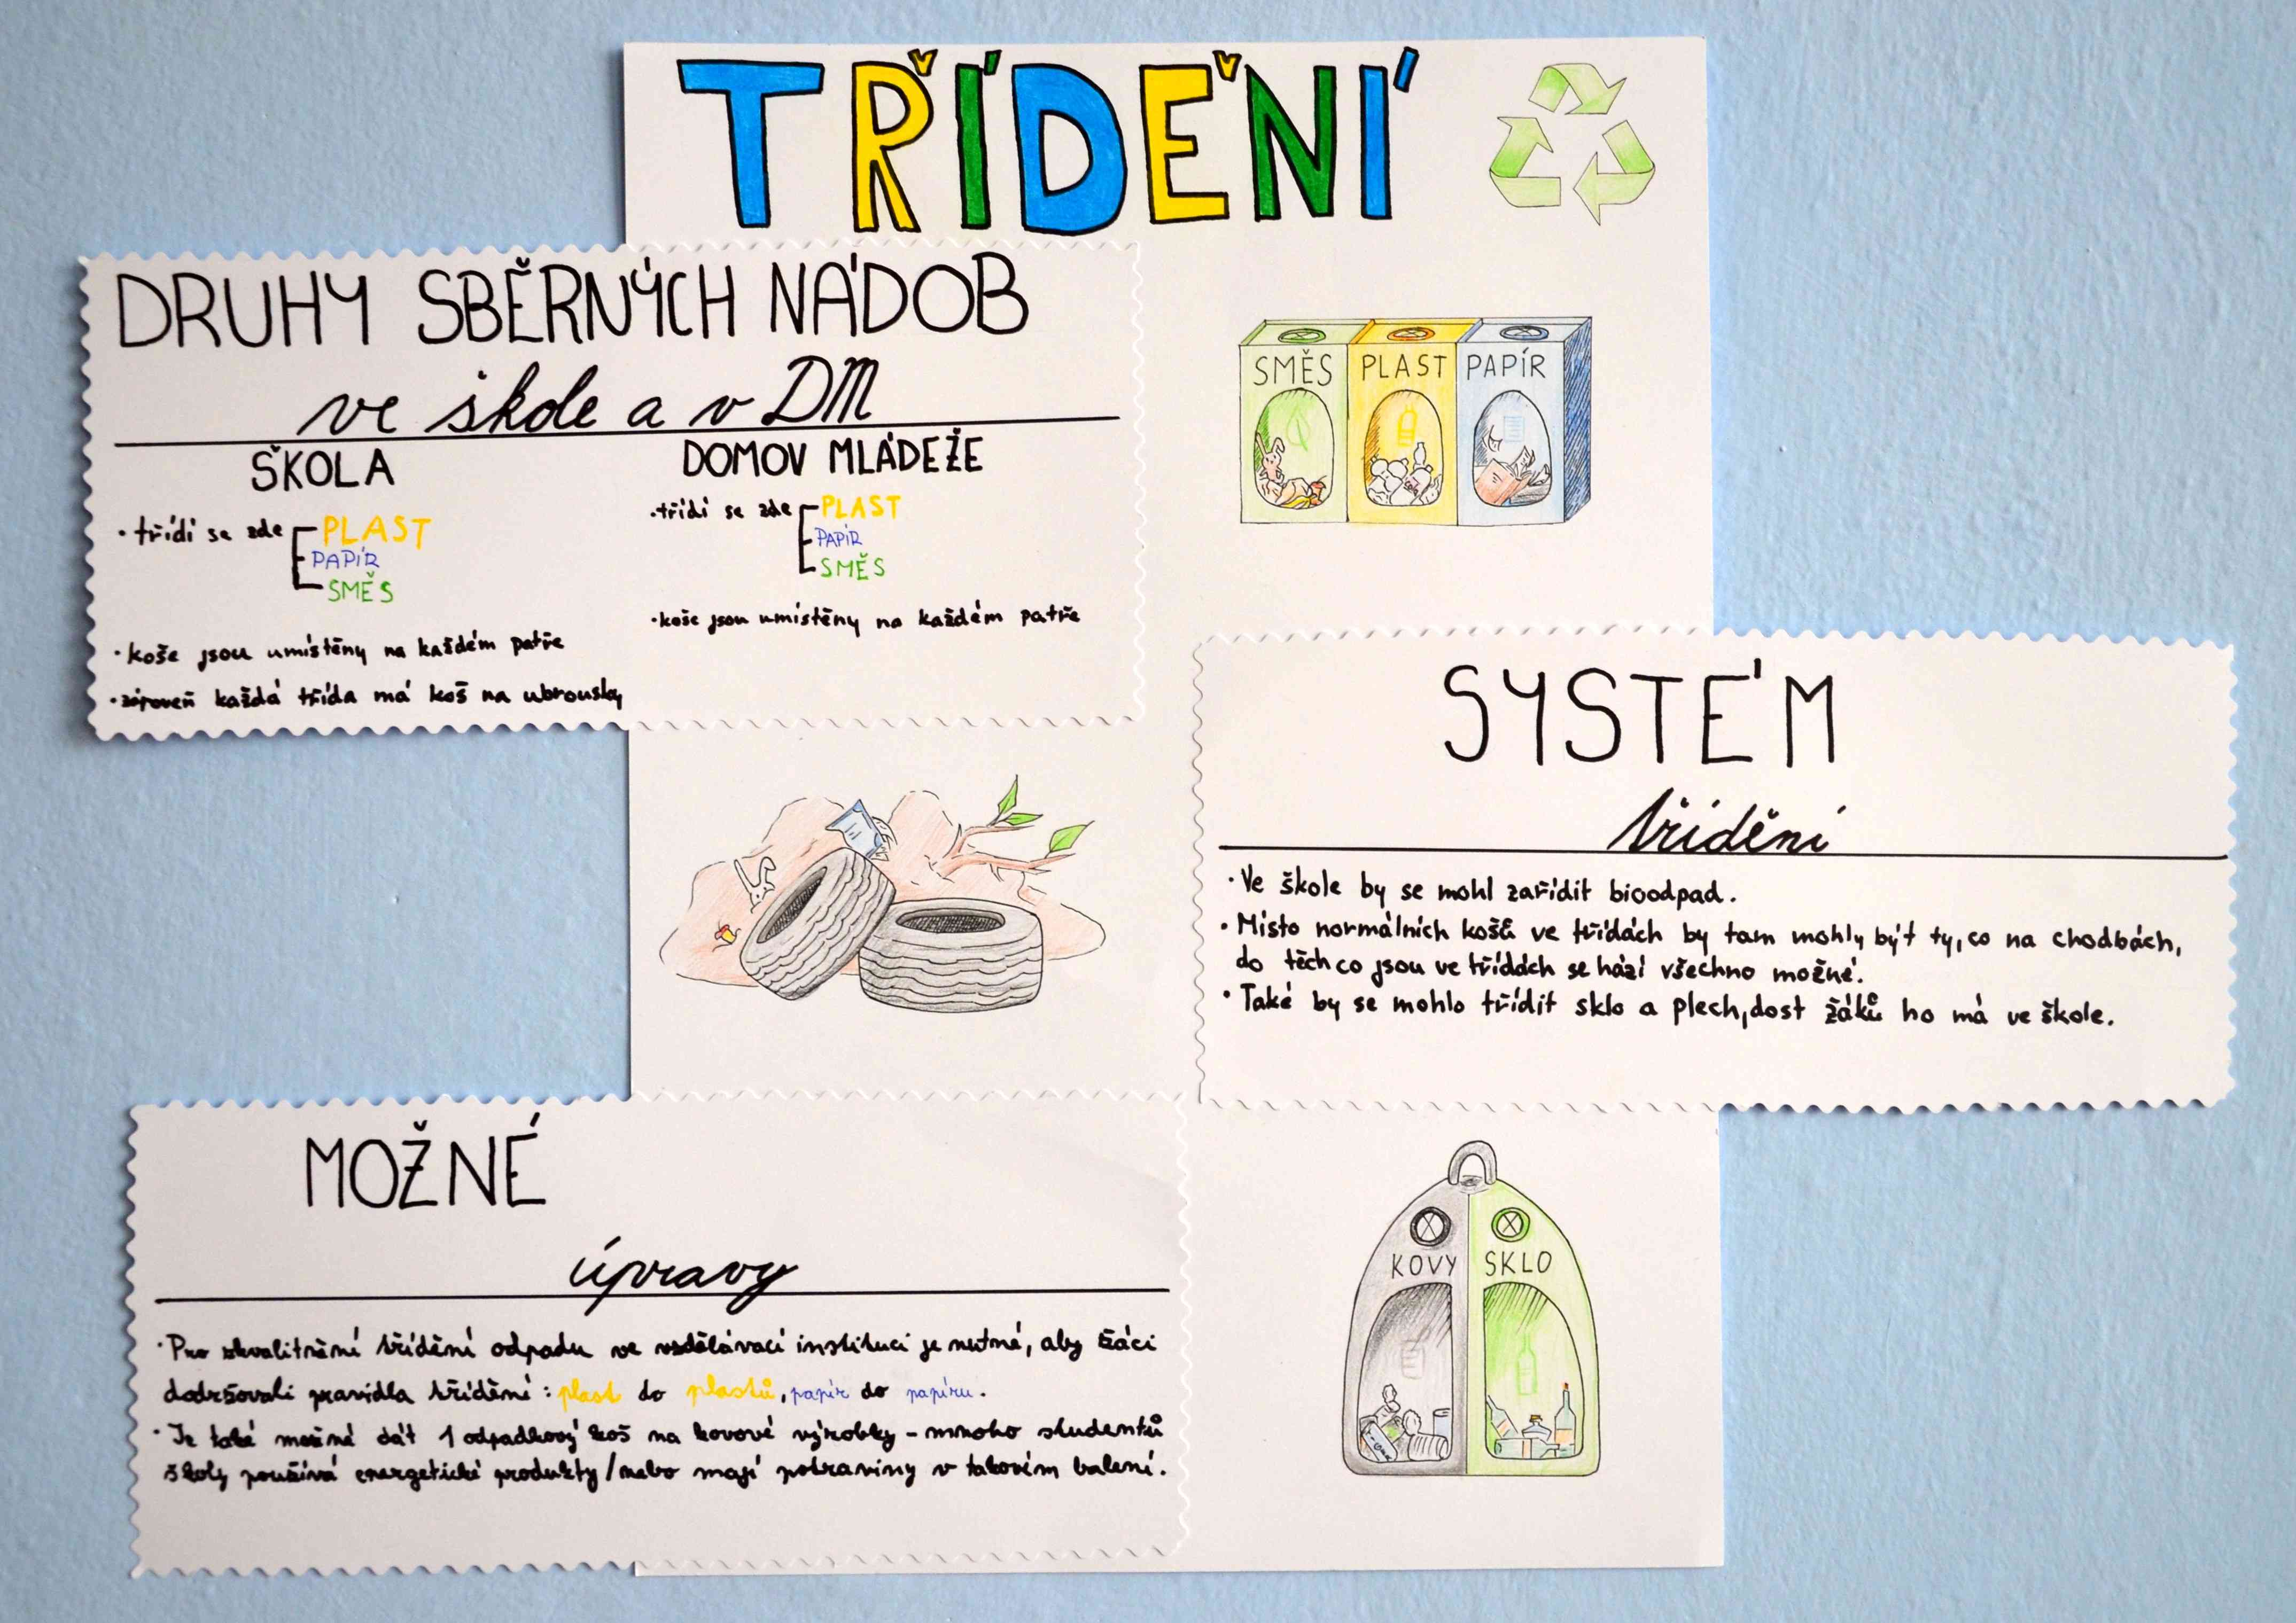 TŘÍDĚNÍ
DRUHY SBĚRNÝCH NÁDOB
ve škole a v DM
ŠKOLA
• třídí se zde PLAST
PAPÍR
SMĚS
• koše jsou umístěny na každém patře
• zároveň každá třída má koš na ubrousky
DOMOV MLÁDEŽE
• třídí se zde PLAST
PAPÍR
SMĚS
• koše jsou umístěny na každém patře
SMĚS PLAST PAPÍR
SYSTÉM
třídění
• Ve škole by se mohl zařídit bioodpad.
• Místo normálních košů ve třídách by tam mohly být ty, co na chodbách,
do těch co jsou ve třídách se hází všechno možné.
• Také by se mohlo třídit sklo a plech, dost žáků ho má ve škole.
MOŽNÉ
úpravy
• Pro zkvalitnění třídění odpadu ve vzdělávací instituci je nutné, aby žáci
dodržovali pravidla třídění: plast do plastů, papír do papíru.
• Je také možné dát 1 odpadkový koš na kovové výrobky - mnoho studentů
školy používá energetické produkty/nebo mají potraviny v takovém balení.
KOVY SKLO